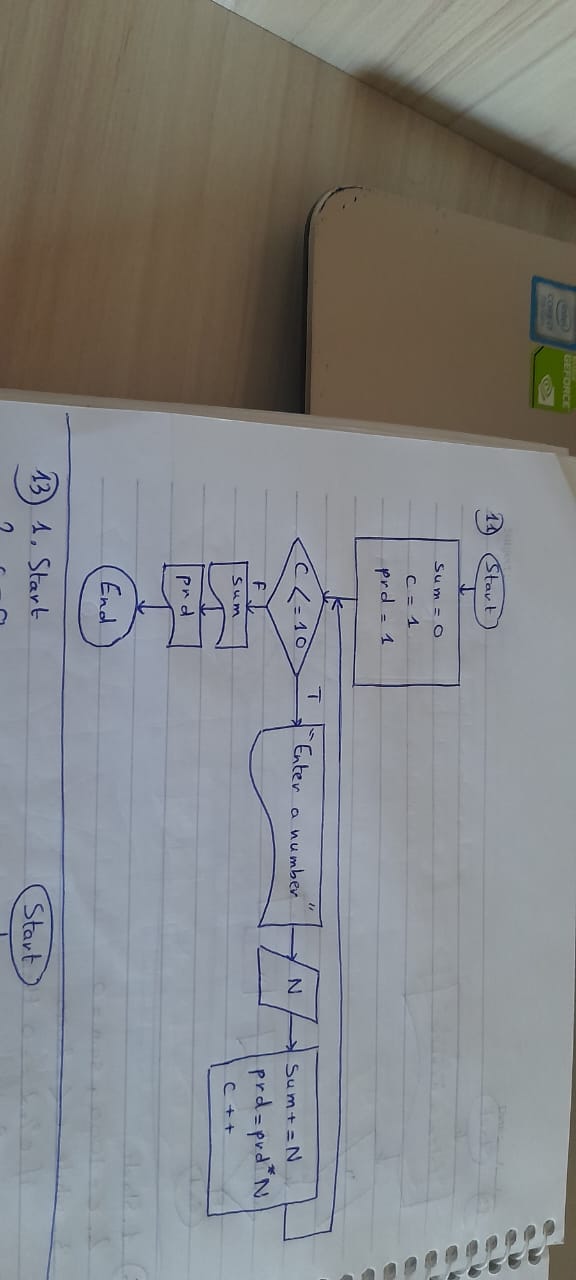 intel
CORE i7
GEFORCE
11 Start
sum = 0
c = 1
prd = 1
C <= 10
T
"Enter a number"
N
sum+=N
prd=prd*N
c ++
F
sum
prd
End
13 1. Start
Start